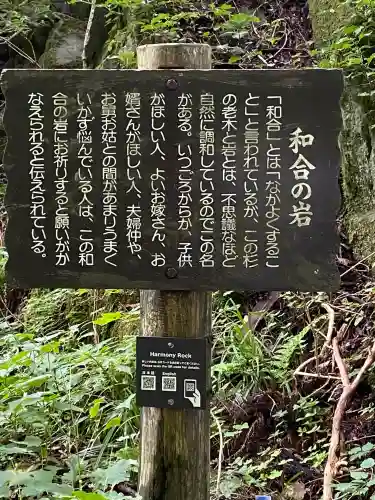 和合の岩
「和合」とは「なかよくするこ
と」と言われているが、この杉
の老木と岩とは、不思議なほど
自然に調和しているのでこの名
がある。いつごろからか、子供
がほしい人、よいお嫁さん、お
婿さんがほしい人、夫婦仲や、
お舅お姑との間があまりうまく
いかず悩んでいる人は、この和
合の岩にお祈りすると願いがか
なえられると伝えられている。
Harmony Rock
Please scan the QR code for details.
日本語 English